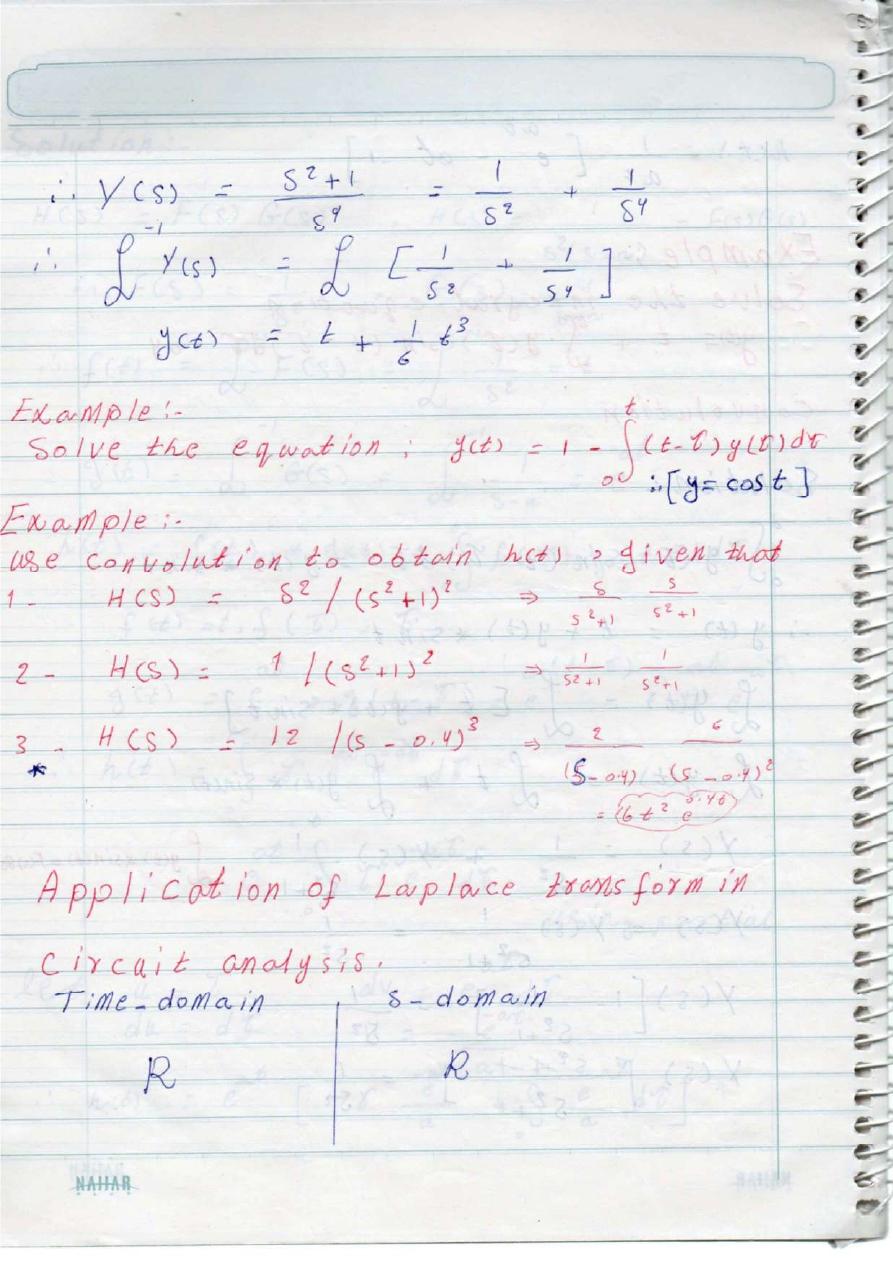 ∴ Y(S) = S²+1 / S⁴ = 1/S² + 1/S⁴
∴ ℒ⁻¹ Y(S) = ℒ [ 1/S² + 1/S⁴ ]
y(t) = t + 1/6 t³
Example :-
Solve the equation ; y(t) = 1 - ∫₀ᵗ (t-τ) y(τ) dτ
∴ [y = cos t]
Example :-
use convolution to obtain h(t) , given that
1 - H(S) = S² / (S²+1)² ⇒ S/S²+1 S/S²+1
2 - H(S) = 1 / (S²+1)² ⇒ 1/S²+1 1/S²+1
3 - H(S) = 12 / (S - 0.4)³ ⇒ 2/(S-0.4) 6/(S-0.4)²
* = 6t² e^0.4t
Application of Laplace transform in
Circuit analysis.
Time-domain | S-domain
R | R
NAHAR